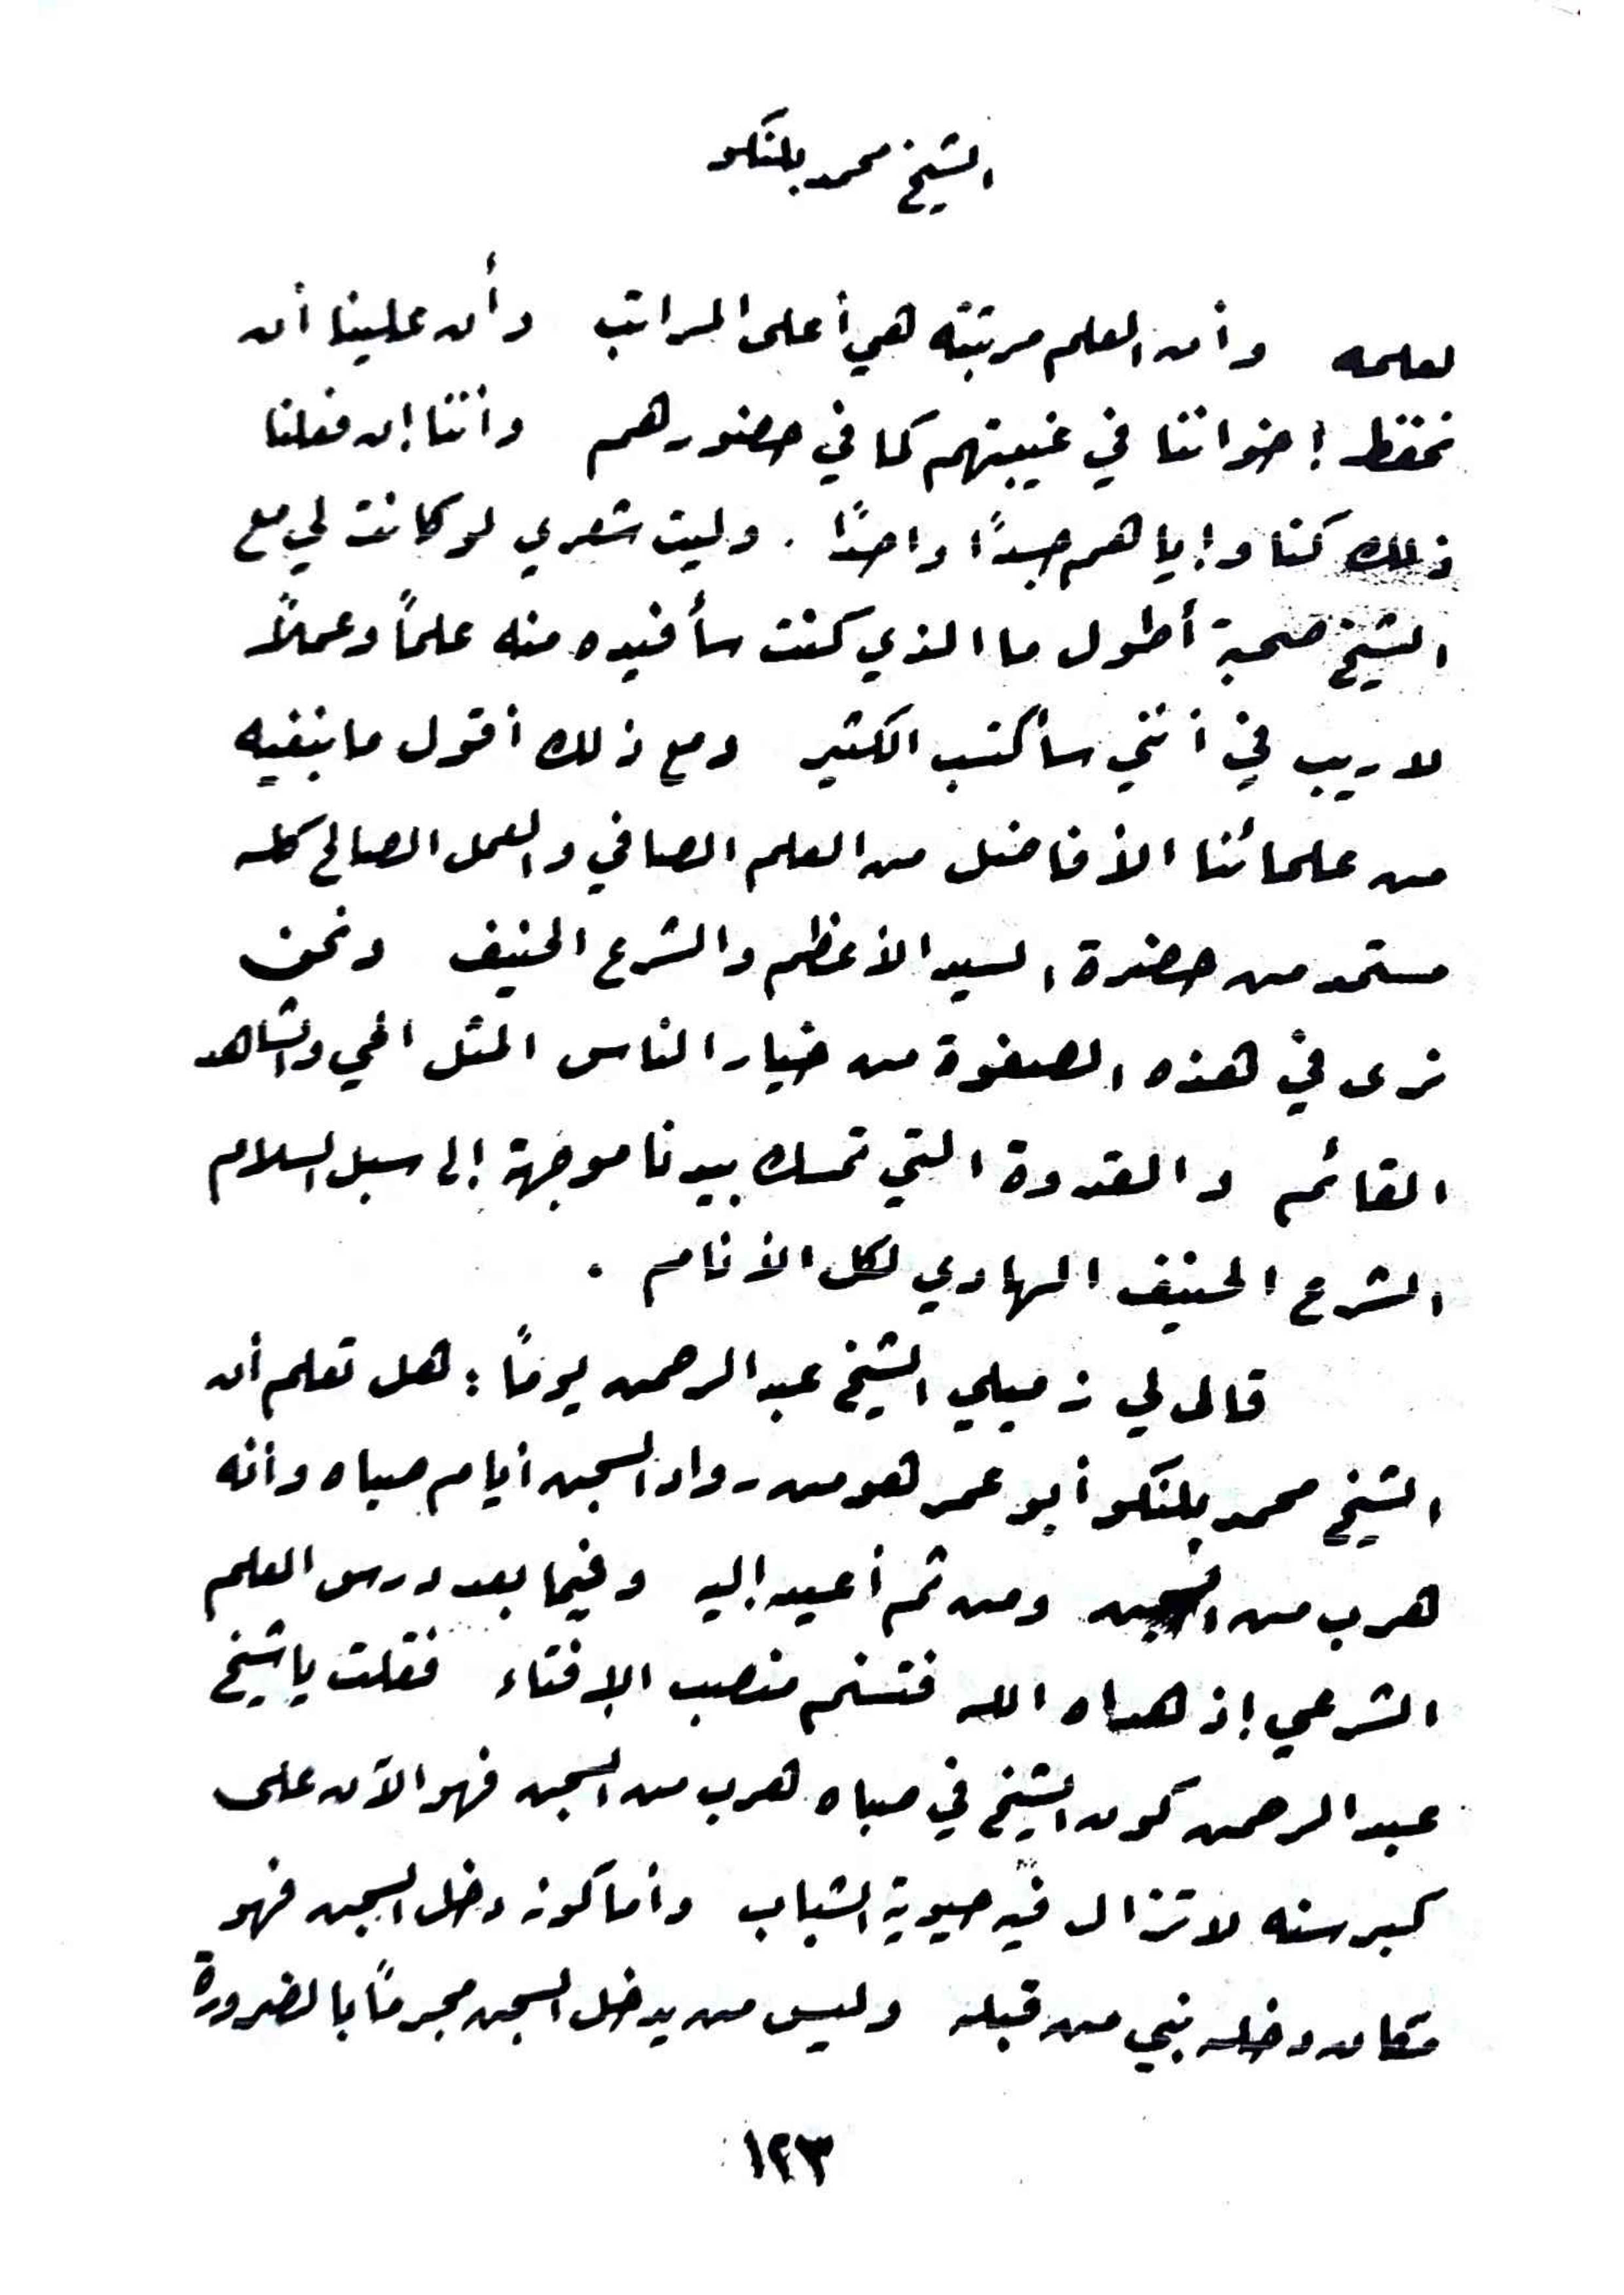 الشيخ محمد بلنكو
لعلمه وأن العلم مرتبته هي أعلى المراتب وأن علينا أن
نحفظ إخواننا في غيبتهم كما في حضورهم وأننا إن فعلنا
ذلك كنا وإياهم جسدًا واحدًا . وليت شعري لو كانت لي مع
الشيخ صحبة أطول ما الذي كنت سأفيده منه علمًا وعملًا
لا ريب في أنني سأكتب الكثير ومع ذلك أقول ما نبغيه
من علمائنا الأفاضل من العلم الصافي والعمل الصالح كله
مستمد من حضرة السيد الأعظم والشرع الحنيف ونحن
نرى في هذه الصفوة من خيار الناس المثل الحي والشاهد
القائم والقدوة التي تمسك بيدنا موجهة إلى سبل السلام
الشرع الحنيف الهادي لكل الأنام .
قال لي زميلي الشيخ عبد الرحمن يومًا : هل تعلم أن
الشيخ محمد بلنكو أبو عمر هو من رواد السجن أيام صباه وأنه
هرب من السجن ومن ثم أعيد إليه وفيما بعد درس العلم
الشرعي إذ هداه الله فتسنم منصب الإفتاء فقلت يا شيخ
عبد الرحمن كون الشيخ في صباه هرب من السجن فهو الآن على
كبر سنه لا تزال فيه حيوية الشباب وأما كونه دخل السجن فهو
مكان دخله نبي من قبله وليس من يدخل السجن مجرمًا بالضرورة
١٢٣